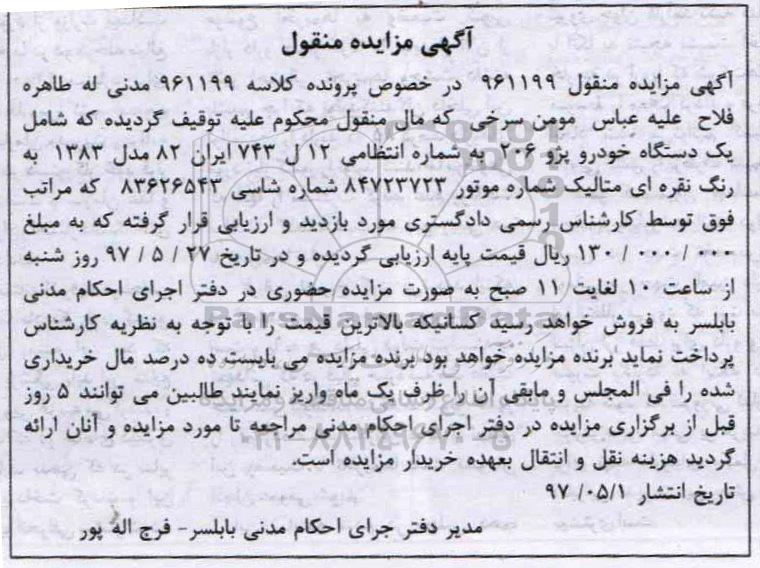 آگهی مزایده منقول
آگهی مزایده منقول ۹۶۱۱۹۹ در خصوص پرونده کلاسه ۹۶۱۱۹۹ مدنی له طاهره
فلاح علیه عباس مومن سرخی که مال منقول محکوم علیه توقیف گردیده که شامل
یک دستگاه خودرو پژو ۲۰۶ به شماره انتظامی ۱۲ ل ۷۴۳ ایران ۸۲ مدل ۱۳۸۳ به
رنگ نقره ای متالیک شماره موتور ۸۴۷۲۳۷۲۳ شماره شاسی ۸۳۶۲۶۵۴۳ که مراتب
فوق توسط کارشناس رسمی دادگستری مورد بازدید و ارزیابی قرار گرفته که به مبلغ
۱۳۰ / ۰۰۰ / ۰۰۰ ریال قیمت پایه ارزیابی گردیده و در تاریخ ۲۷ / ۵ / ۹۷ روز شنبه
از ساعت ۱۰ لغایت ۱۱ صبح به صورت مزایده حضوری در دفتر اجرای احکام مدنی
بابلسر به فروش خواهد رسید کسانیکه بالاترین قیمت را با توجه به نظریه کارشناس
پرداخت نماید برنده مزایده خواهد بود برنده مزایده می بایست ده درصد مال خریداری
شده را فی المجلس و مابقی آن را ظرف یک ماه واریز نمایند طالبین می توانند ۵ روز
قبل از برگزاری مزایده در دفتر اجرای احکام مدنی مراجعه تا مورد مزایده و آنان ارائه
گردید هزینه نقل و انتقال بعهده خریدار مزایده است.
تاریخ انتشار ۹۷/۰۵/۱
مدیر دفتر جرای احکام مدنی بابلسر- فرج اله پور
ParsNamadData
۰۲۱-۸۸۳۴۹۶۷۰-۵